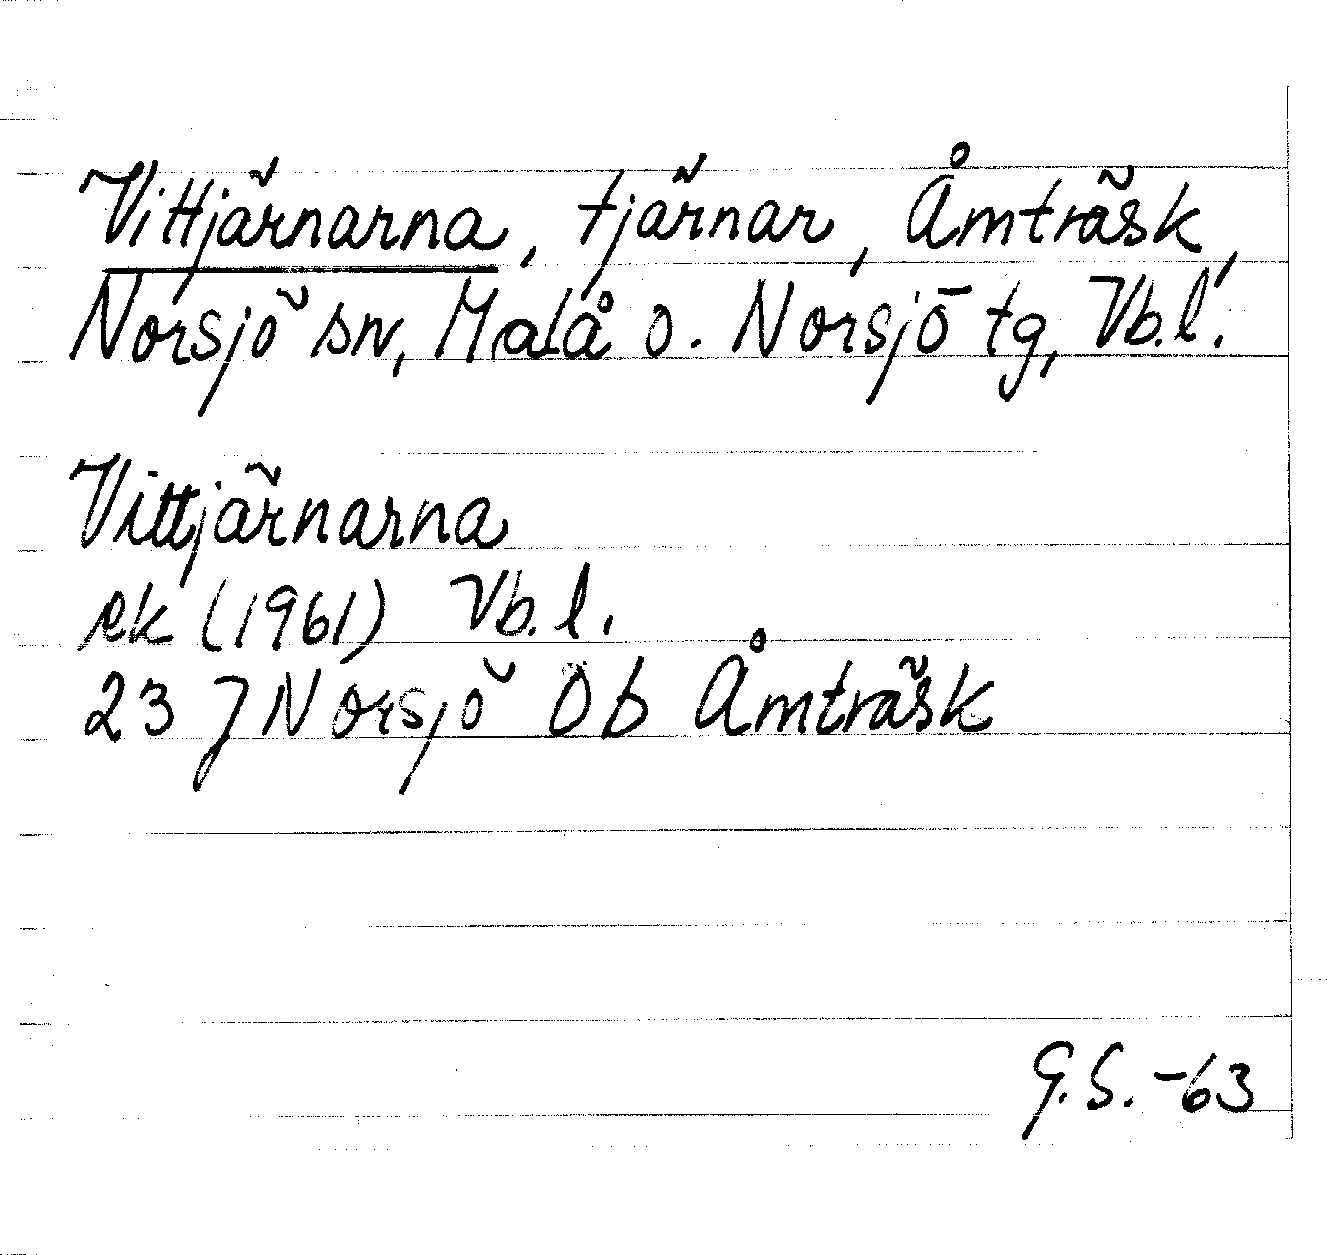 Vittjärnarna, tjärnar, Åmträsk,
Norsjö sn, Malå o. Norsjö tg, Vb.l.
Vittjärnarna
ek (1961) Vb.l.
23 J Norsjö Öb Åmträsk
G.S. -63